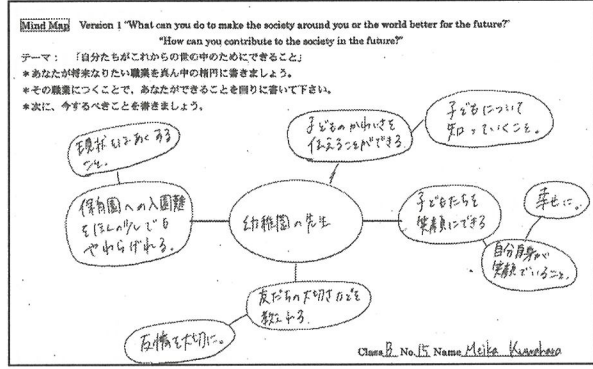 Mind Map Version 1 "What can you do to make the society around you or the world better for the future?"
"How can you contribute to the society in the future?"
テーマ： 「自分たちがこれからの世の中のためにできること」
＊あなたが将来なりたい職業を真ん中の楕円に書きましょう。
＊その職業につくことで、あなたができることを回りに書いて下さい。
＊次に、今するべきことを書きましょう。
子どものかわいさを
伝えることができる
子どもについて
知っていくこと。
現状をはあくする
こと。
保育園への入園難
をほんの少しでも
やわらげれる。
幼稚園の先生
子どもたちを
笑顔にできる
幸せに。
自分自身が
笑顔でいること。
友だちの大切さなどを
教えれる
友情を大切に。
Class B No. 15 Name Meika Kuwahara